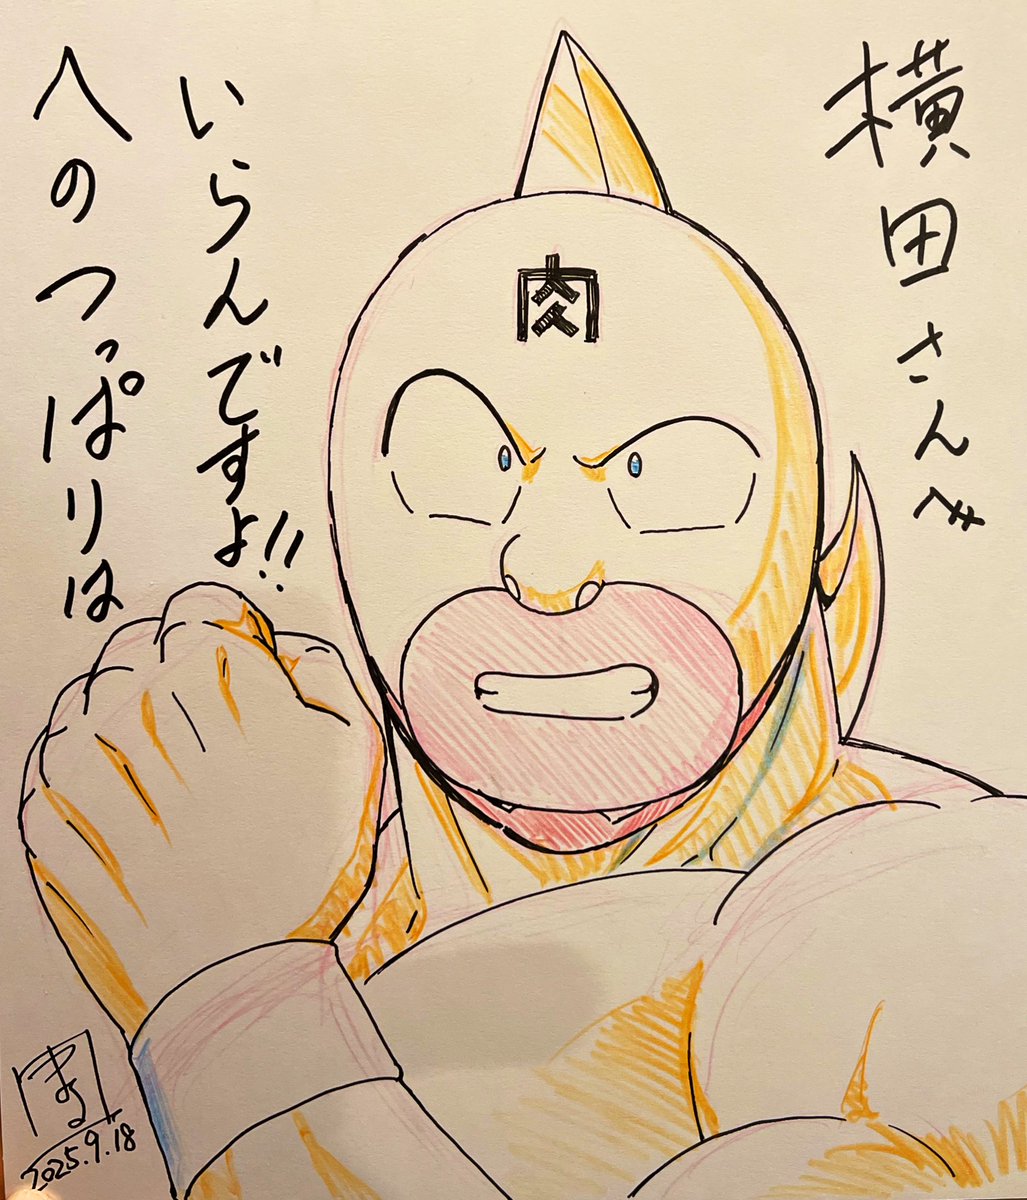 横田さんへ
いらんですよ!!
へのつっぱりは
肉
2025.9.18